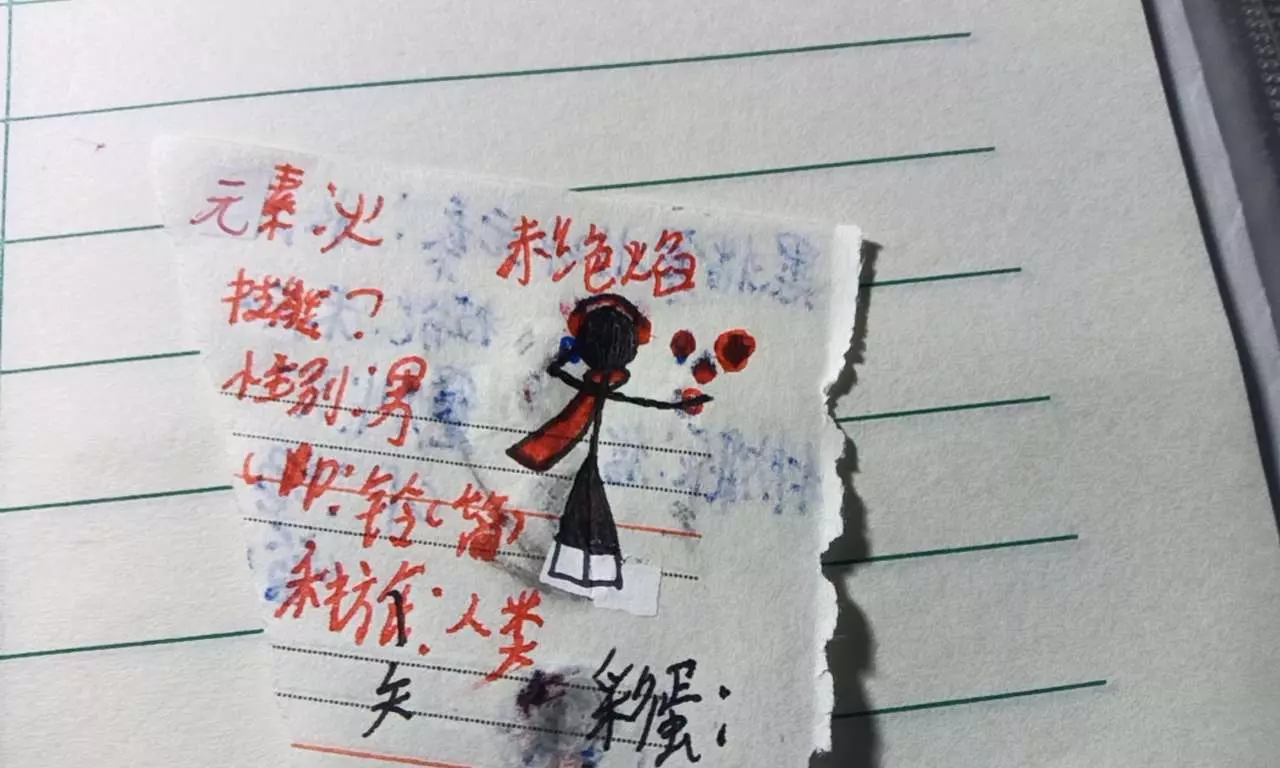 元素:火
赤绝焰
技能?
性别:男
种族:人类
矢
彩蛋: